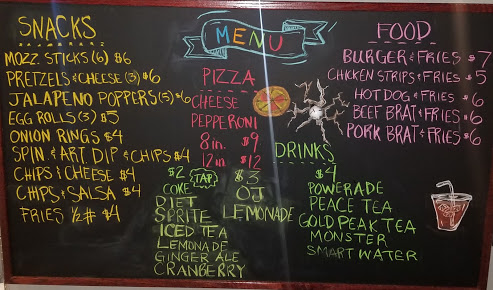 SNACKS
MOZZ. STICKS (6) $6
PRETZELS & CHEESE (3) $6
JALAPENO POPPERS (5) $6
EGG ROLLS (3) $5
ONION RINGS $4
SPIN & ART. DIP & CHIPS $4
CHIPS & CHEESE $4
CHIPS & SALSA $4
FRIES ½# $4
MENU
PIZZA
CHEESE
PEPPERONI
8 in. $9
12 in $12
FOOD
BURGER & FRIES $7
CHICKEN STRIPS & FRIES $5
HOT DOG & FRIES $6
BEEF BRAT & FRIES $6
PORK BRAT & FRIES $6
DRINKS
$2 TAP
COKE
DIET
SPRITE
ICED TEA
LEMONADE
GINGER ALE
CRANBERRY
$3
OJ
LEMONADE
$4
POWERADE
PEACE TEA
GOLD PEAK TEA
MONSTER
SMART WATER